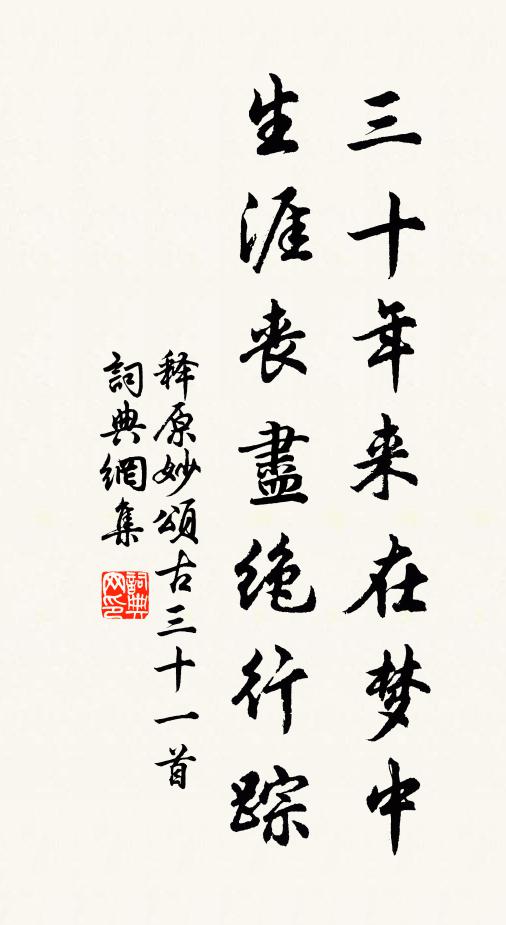 三十年来在梦中
生涯丧盡绝行踪
释原妙頌古三十一首
詞典網集
詞典网印